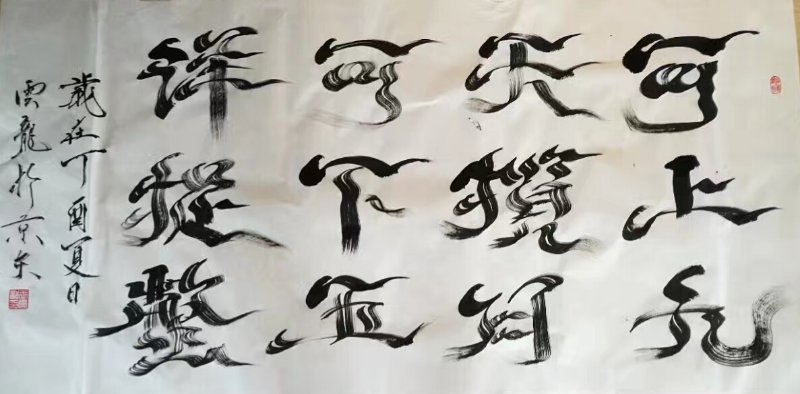 可上九
天攬月
可下五
洋捉鱉
歲在丁酉夏日
雲龍於京东